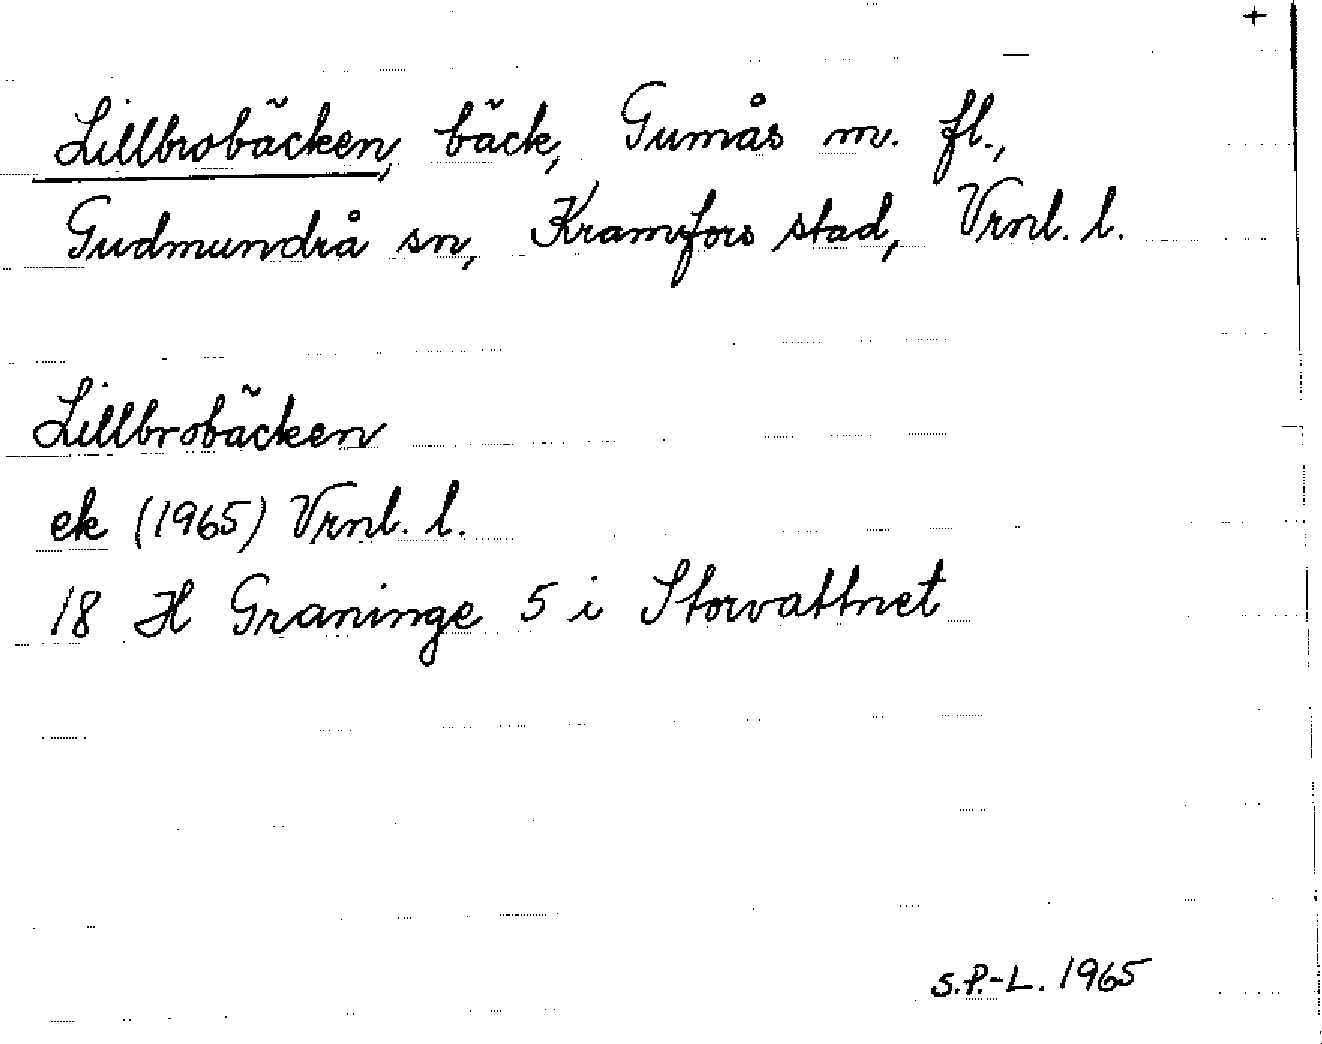 +
Lillbrobäcken, bäck, Gumås m. fl.,
Gudmundrå sn, Kramfors stad, Vrnl. l.
Lillbrobäcken
ek (1965) Vrnl. l.
18 H Graninge 5 i Storvattnet
S.P.-L. 1965